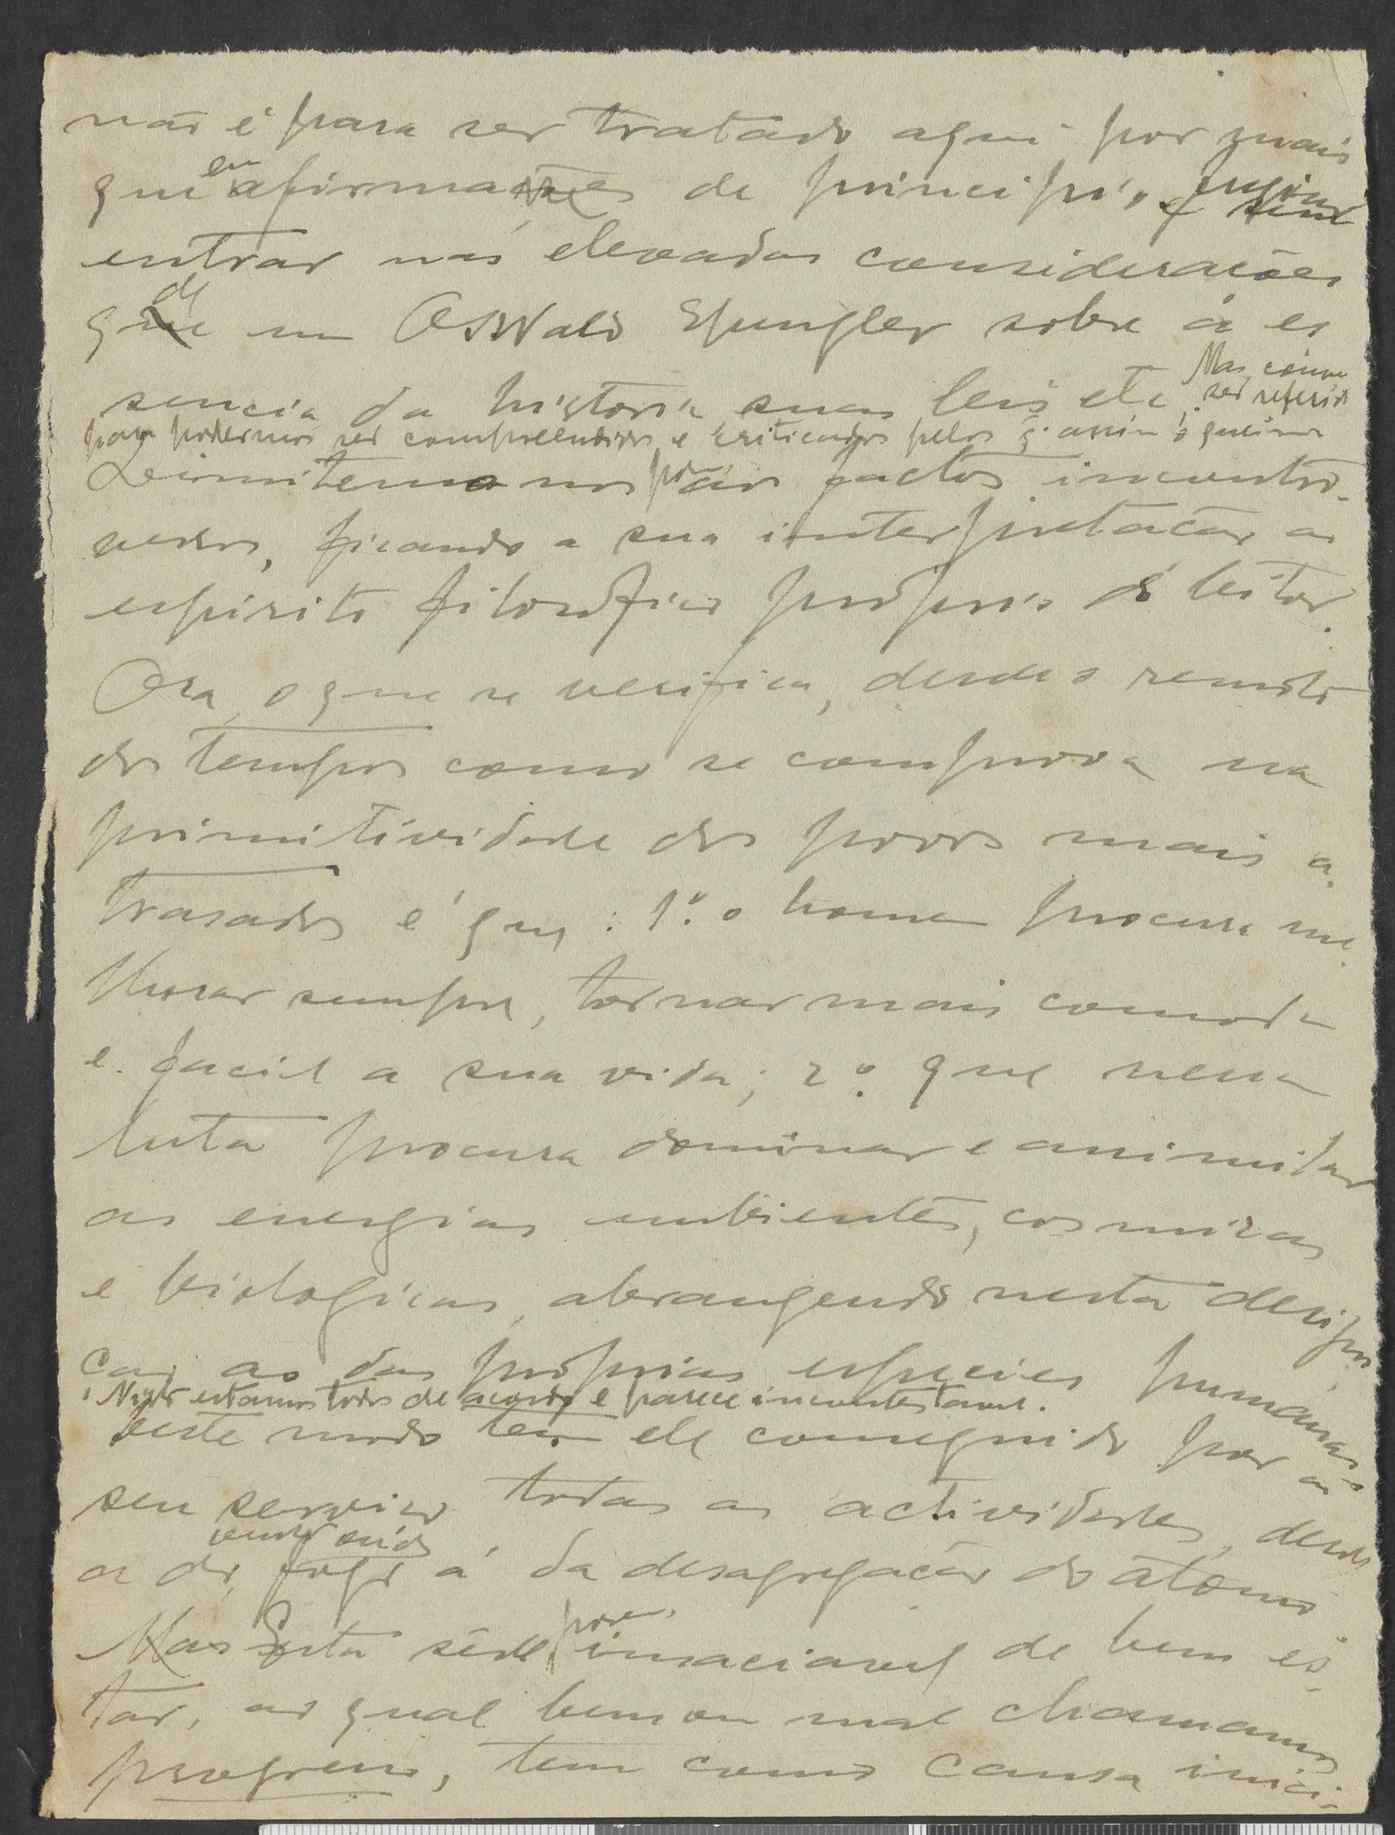 não é para ser tratado aqui por mais
que em afirmações de principio, e sem
entrar nas elevadas considerações
de um Oswald Spengler sobre a es
sencia da historia suas leis etc. Mas convem
ser referido
para podermos ser compreendidos e criticados pelos q. assim o queiram
Limitemo nos por aos factos incontro-
versos, ficando a sua interpretação ao
espirito filosofico proprio do leitor.
Ora, o que se verifica, desde o remoto
dos tempos como se comprova na
primitividade dos povos mais a-
trasados é que: 1º o homem procura me-
lhorar sempre, tornar mais comoda
e facil a sua vida; 2º que nessa
luta procura dominar e assimilar
as energias ambientes, cosmicas
e biologicas, abrangendo nesta designa
ção as das proprias especies humanas.
Nisto estamos todos de acordo e parece incontestavel.
Deste modo tem ele conseguido por ao
seu serviço todas as actividades, desde
a do vento, fogo á da desagregação do atomo
Mas Esta sêde porem insaciavel de bem es-
tar, ao qual bem ou mal chamamos
progresso, tem como causa inici-